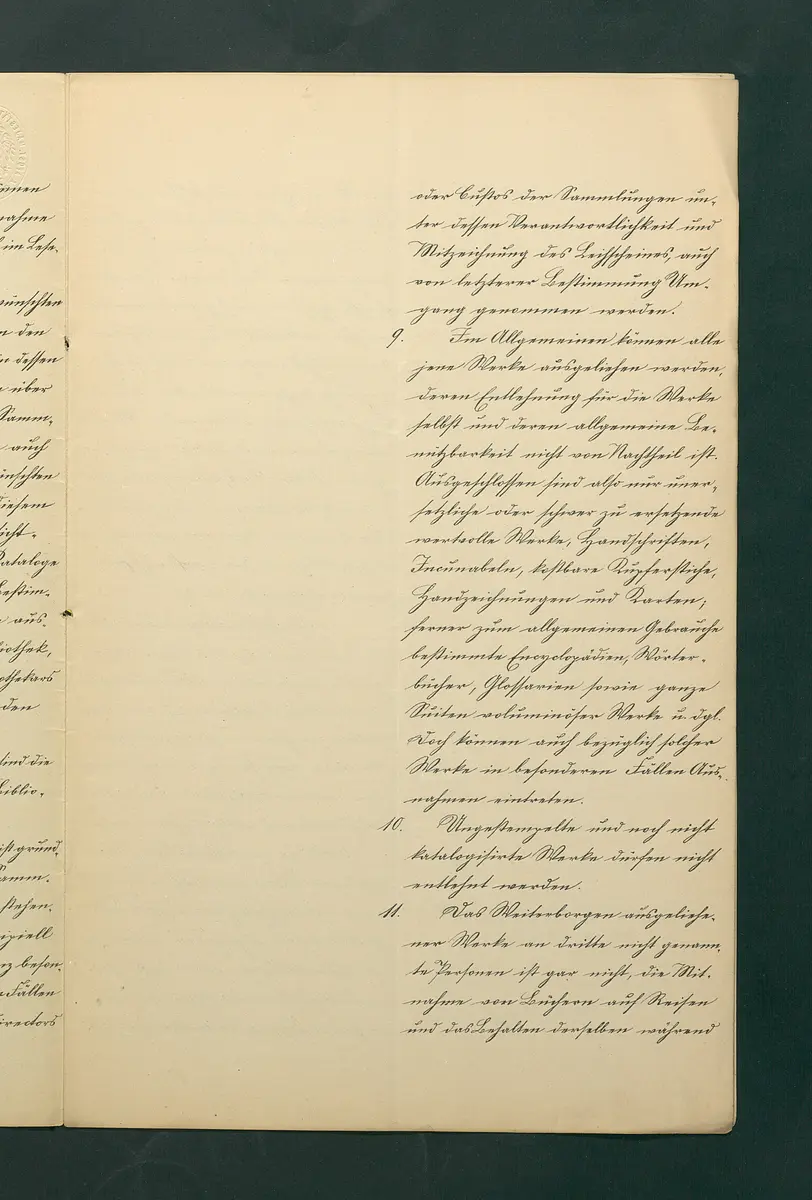 innen
nahme
im Lese-
wünschten
n den
in dessen
über
Samm-
auch
ünschten
diesem
icht-
Kataloge
Bestim-
aus-
liothek,
othekars
den
sind die
Biblio-
ist grund-
Samm-
stehen.
izipiell
nz beson-
Fällen
irectors
oder Custos der Sammlungen un-
ter dessen Verantwortlichkeit und
Mitzeichnung des Leihscheines, auch
von letzterer Bestimmung Um-
gang genommen werden.
9. Im Allgemeinen können alle
jene Werke ausgeliehen werden,
deren Entlehnung für die Werke
selbst und deren allgemeine Be-
nützbarkeit nicht von Nachtheil ist.
Ausgeschlossen sind also nur uner-
setzliche oder schwer zu ersetzende
wertvolle Werke, Handschriften,
Incunabeln, kostbare Kupferstiche,
Handzeichnungen und Karten;
ferner zum allgemeinen Gebrauche
bestimmte Encyclopädien, Wörter-
bücher, Glossarien sowie ganze
Suiten voluminöser Werke u. dgl.
Doch können auch bezüglich solcher
Werke in besonderen Fällen Aus-
nahmen eintreten.
10. Ungestempelte und noch nicht
katalogisirte Werke dürfen nicht
entlehnt werden.
11. Das Weiterborgen ausgeliehe-
ner Werke an dritte nicht genann-
te Personen ist gar nicht, die Mit-
nahme von Büchern auf Reisen
und das Behalten derselben während